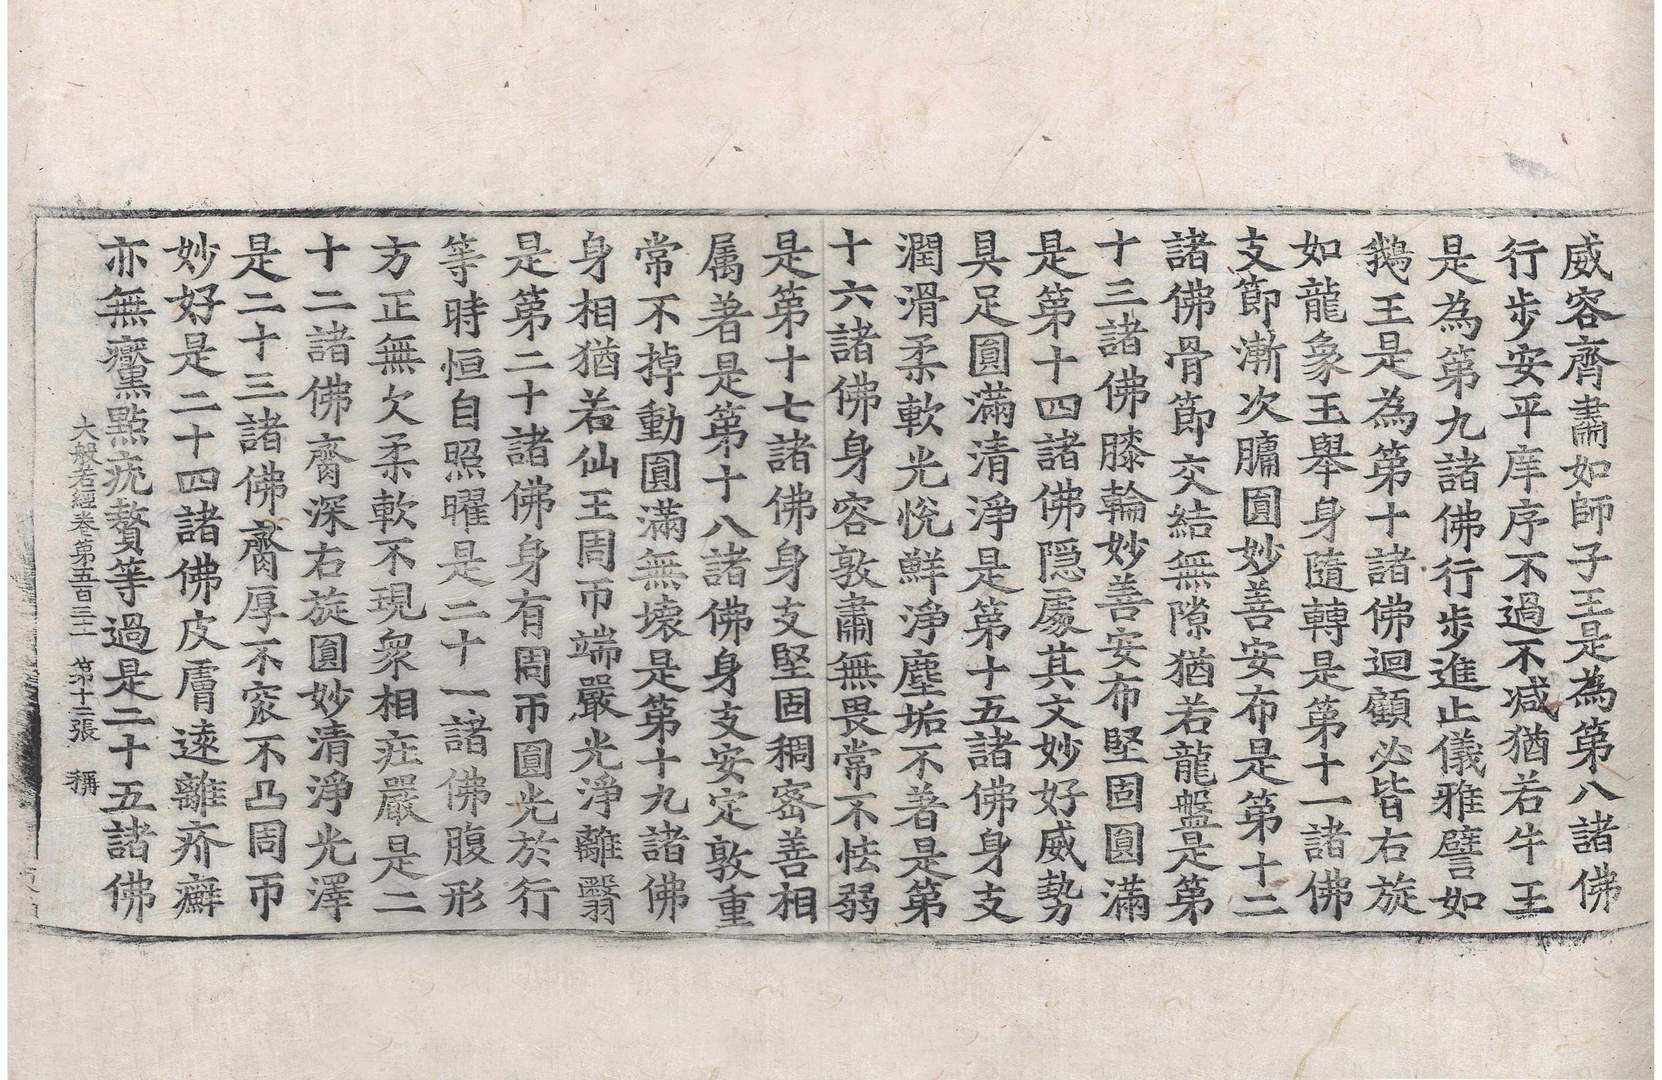 威容齊肅如師子王是為第八諸佛
行步安平庠序不過不減猶若牛王
是為第九諸佛行步進止儀雅譬如
鵝王是為第十諸佛迴顧必皆右旋
如龍象王舉身隨轉是第十一諸佛
支節漸次𦟛圓妙善安布是第十二
諸佛骨節交結無隙猶若龍盤是第
十三諸佛膝輪妙善安布堅固圓滿
是第十四諸佛隱處其文妙好威勢
具足圓滿清淨是第十五諸佛身支
潤滑柔軟光悅鮮淨塵垢不著是第
十六諸佛身容敦肅無畏常不怯弱
是第十七諸佛身支堅固稠密善相
属著是第十八諸佛身支安定敦重
常不掉動圓滿無壞是第十九諸佛
身相猶若仙王周帀端嚴光淨離翳
是第二十諸佛身有周帀圓光於行
等時恒自照曜是二十一諸佛腹形
方正無欠柔軟不現衆相莊嚴是二
十二諸佛齎深右旋圓妙清淨光澤
是二十三諸佛齎厚不窊不凸周帀
妙好是二十四諸佛皮膚遠離疥癬
亦無黶點疣贅等過是二十五諸佛
大般若經卷第五百三十一 第十二張 稱